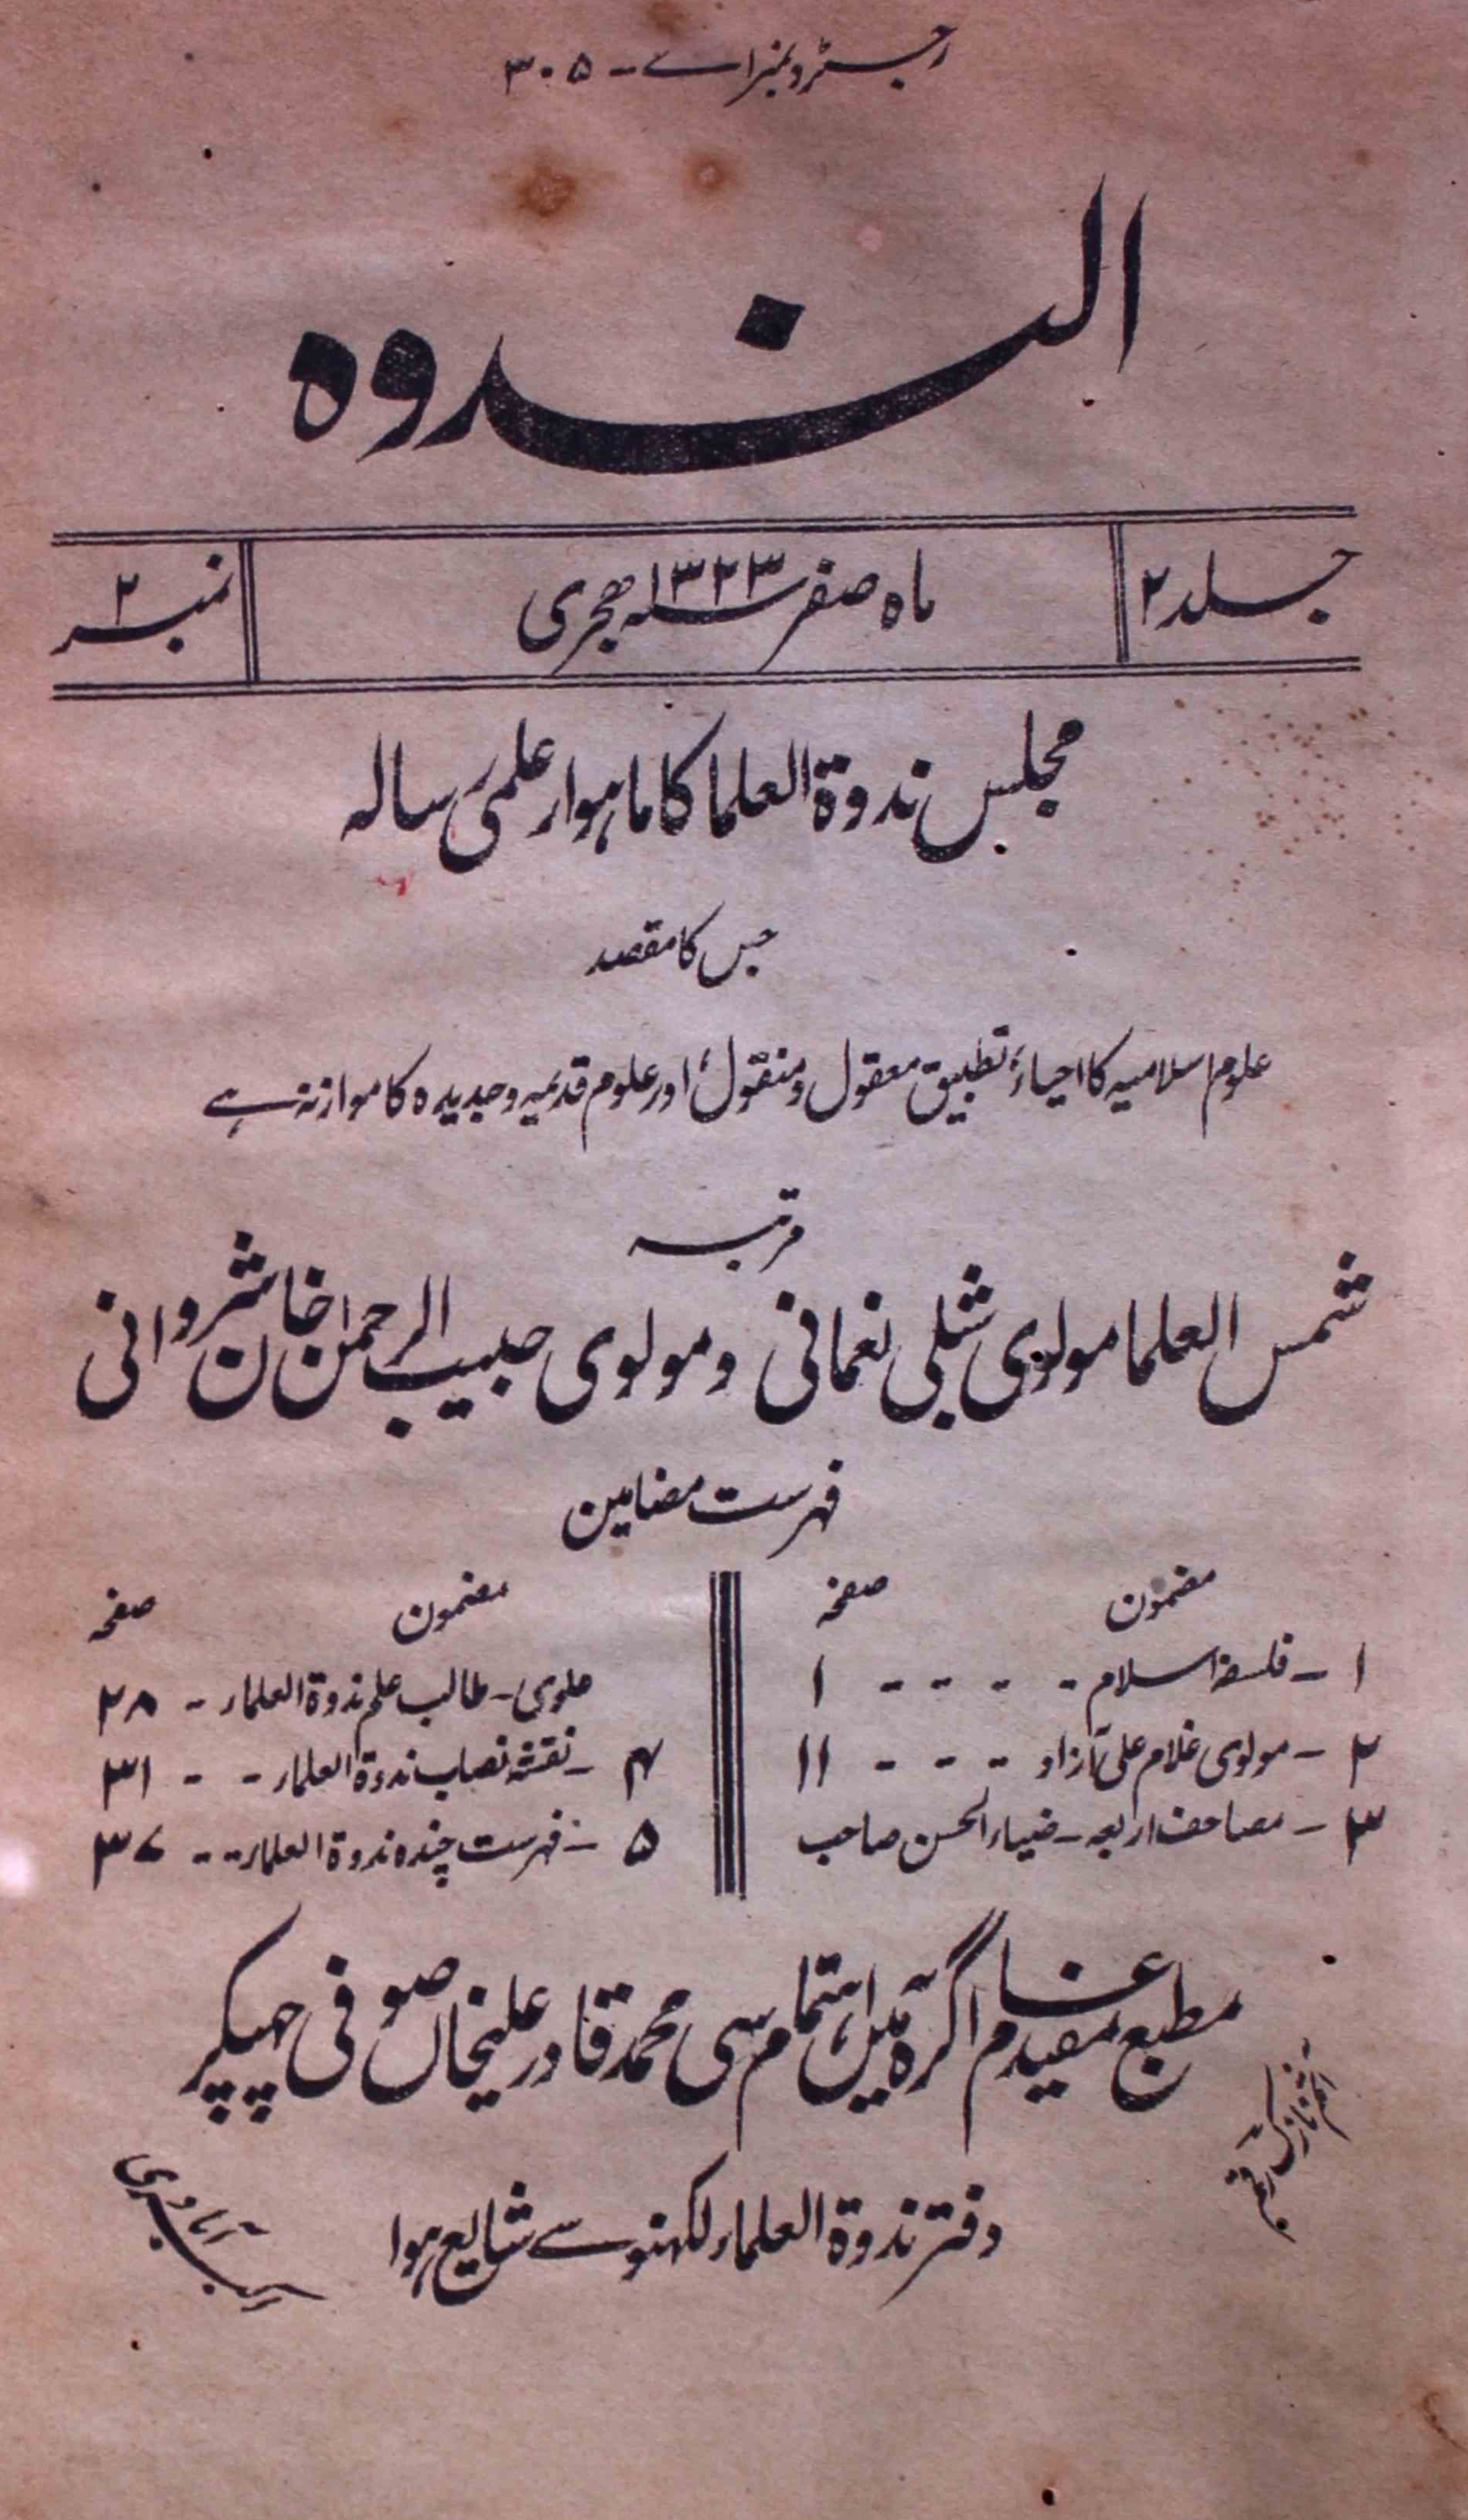 رجسٹرڈ نمبر اے - ۳۰۵
الندوہ
جلد ۲
ماہ صفر ۱۳۲۳ سنہ ہجری
نمبر ۲
مجلس ندوۃ العلما کا ماہوار علمی رسالہ
جس کا مقصد
علوم اسلامیہ کا احیاء، تطبیق معقول و منقول، اور علوم قدیمہ و جدیدہ کا موازنہ ہے
مرتبہ
شمس العلما مولوی شبلی نعمانی و مولوی حبیب الرحمن خان شروانی
فہرست مضامین
مضمون صفحہ
۱ - فلسفہ اسلام - - - - ۱
۲ - مولوی غلام علی آزاد - - - ۱۱
۳ - مصاحف اربعہ - ضیاء الحسن صاحب
مضمون صفحہ
علوی - طالب علم ندوۃ العلماء - - ۲۸
۴ - نقشہ نصاب ندوۃ العلماء - - - ۳۱
۵ - فہرست چندہ ندوۃ العلماء - - - ۳۷
مطبع مفید عام اگرہ میں باہتمام محمد قادر علیخاں صوفی چھپکر
دفتر ندوۃ العلماء لکھنو سے شایع ہوا